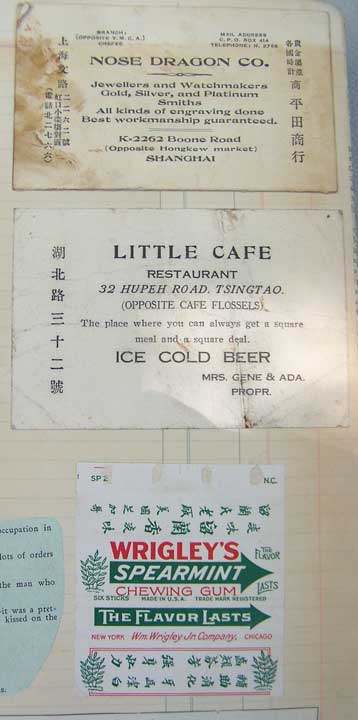 BRANCH:
(OPPOSITE Y.M.C.A.)
CHEFOO
MAIL ADDRESS
C.P.O. BOX 414
TELEPHONE: N. 2766
NOSE DRAGON CO.
Jewellers and Watchmakers
Gold, Silver, and Platinum
Smiths
All kinds of engraving done
Best workmanship guaranteed.
K-2262 Boone Road
(Opposite Hongkew market)
SHANGHAI
商平田商行
上海文路
LITTLE CAFE
RESTAURANT
32 HUPEH ROAD. TSINGTAO.
(OPPOSITE CAFE FLOSSELS)
The place where you can always get a square
meal and a square deal.
ICE COLD BEER
MRS. GENE & ADA.
PROPR.
湖北路三十二號
SP 2
N.C.
WRIGLEY'S
SPEARMINT
CHEWING GUM
THE FLAVOR
LASTS
SIX STICKS MADE IN U.S.A. TRADE MARK REGISTERED
THE FLAVOR LASTS
NEW YORK Wm. Wrigley Jr. Company. CHICAGO
occupation in
lots of orders
the man who
it was a pret-
kissed on the
s.